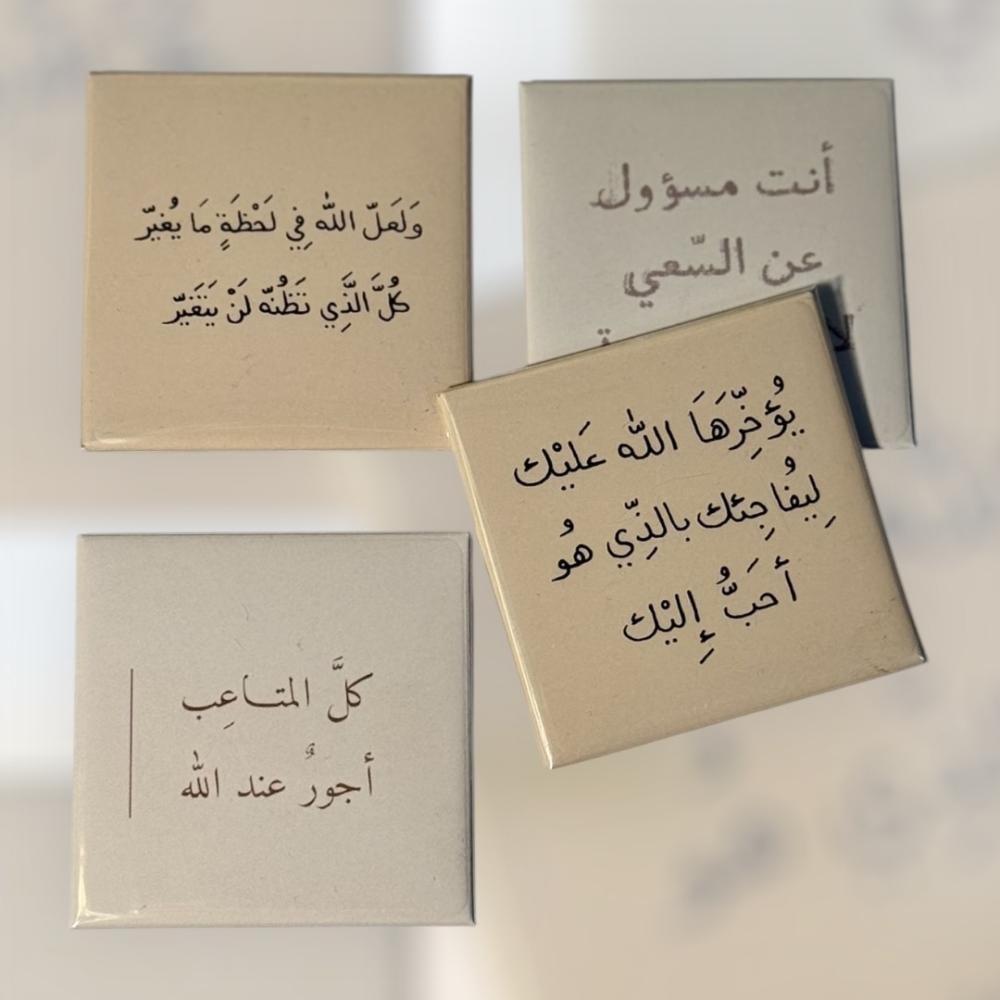 وَلَعَلّ اللّٰه فِي لَحْظَةٍ مَا يُغيّر
كُلَّ الَّذِي تَظُنُّه لَنْ يَتَغَيّر
أنت مسؤول
عن السّعي
يُؤَخِّرَهَا اللّٰه عَليْك
لِيفُاجِئك بالذِّي هُو
أحَبُّ إِليْك
كلَّ المتاعِب
أجورٌ عند الله